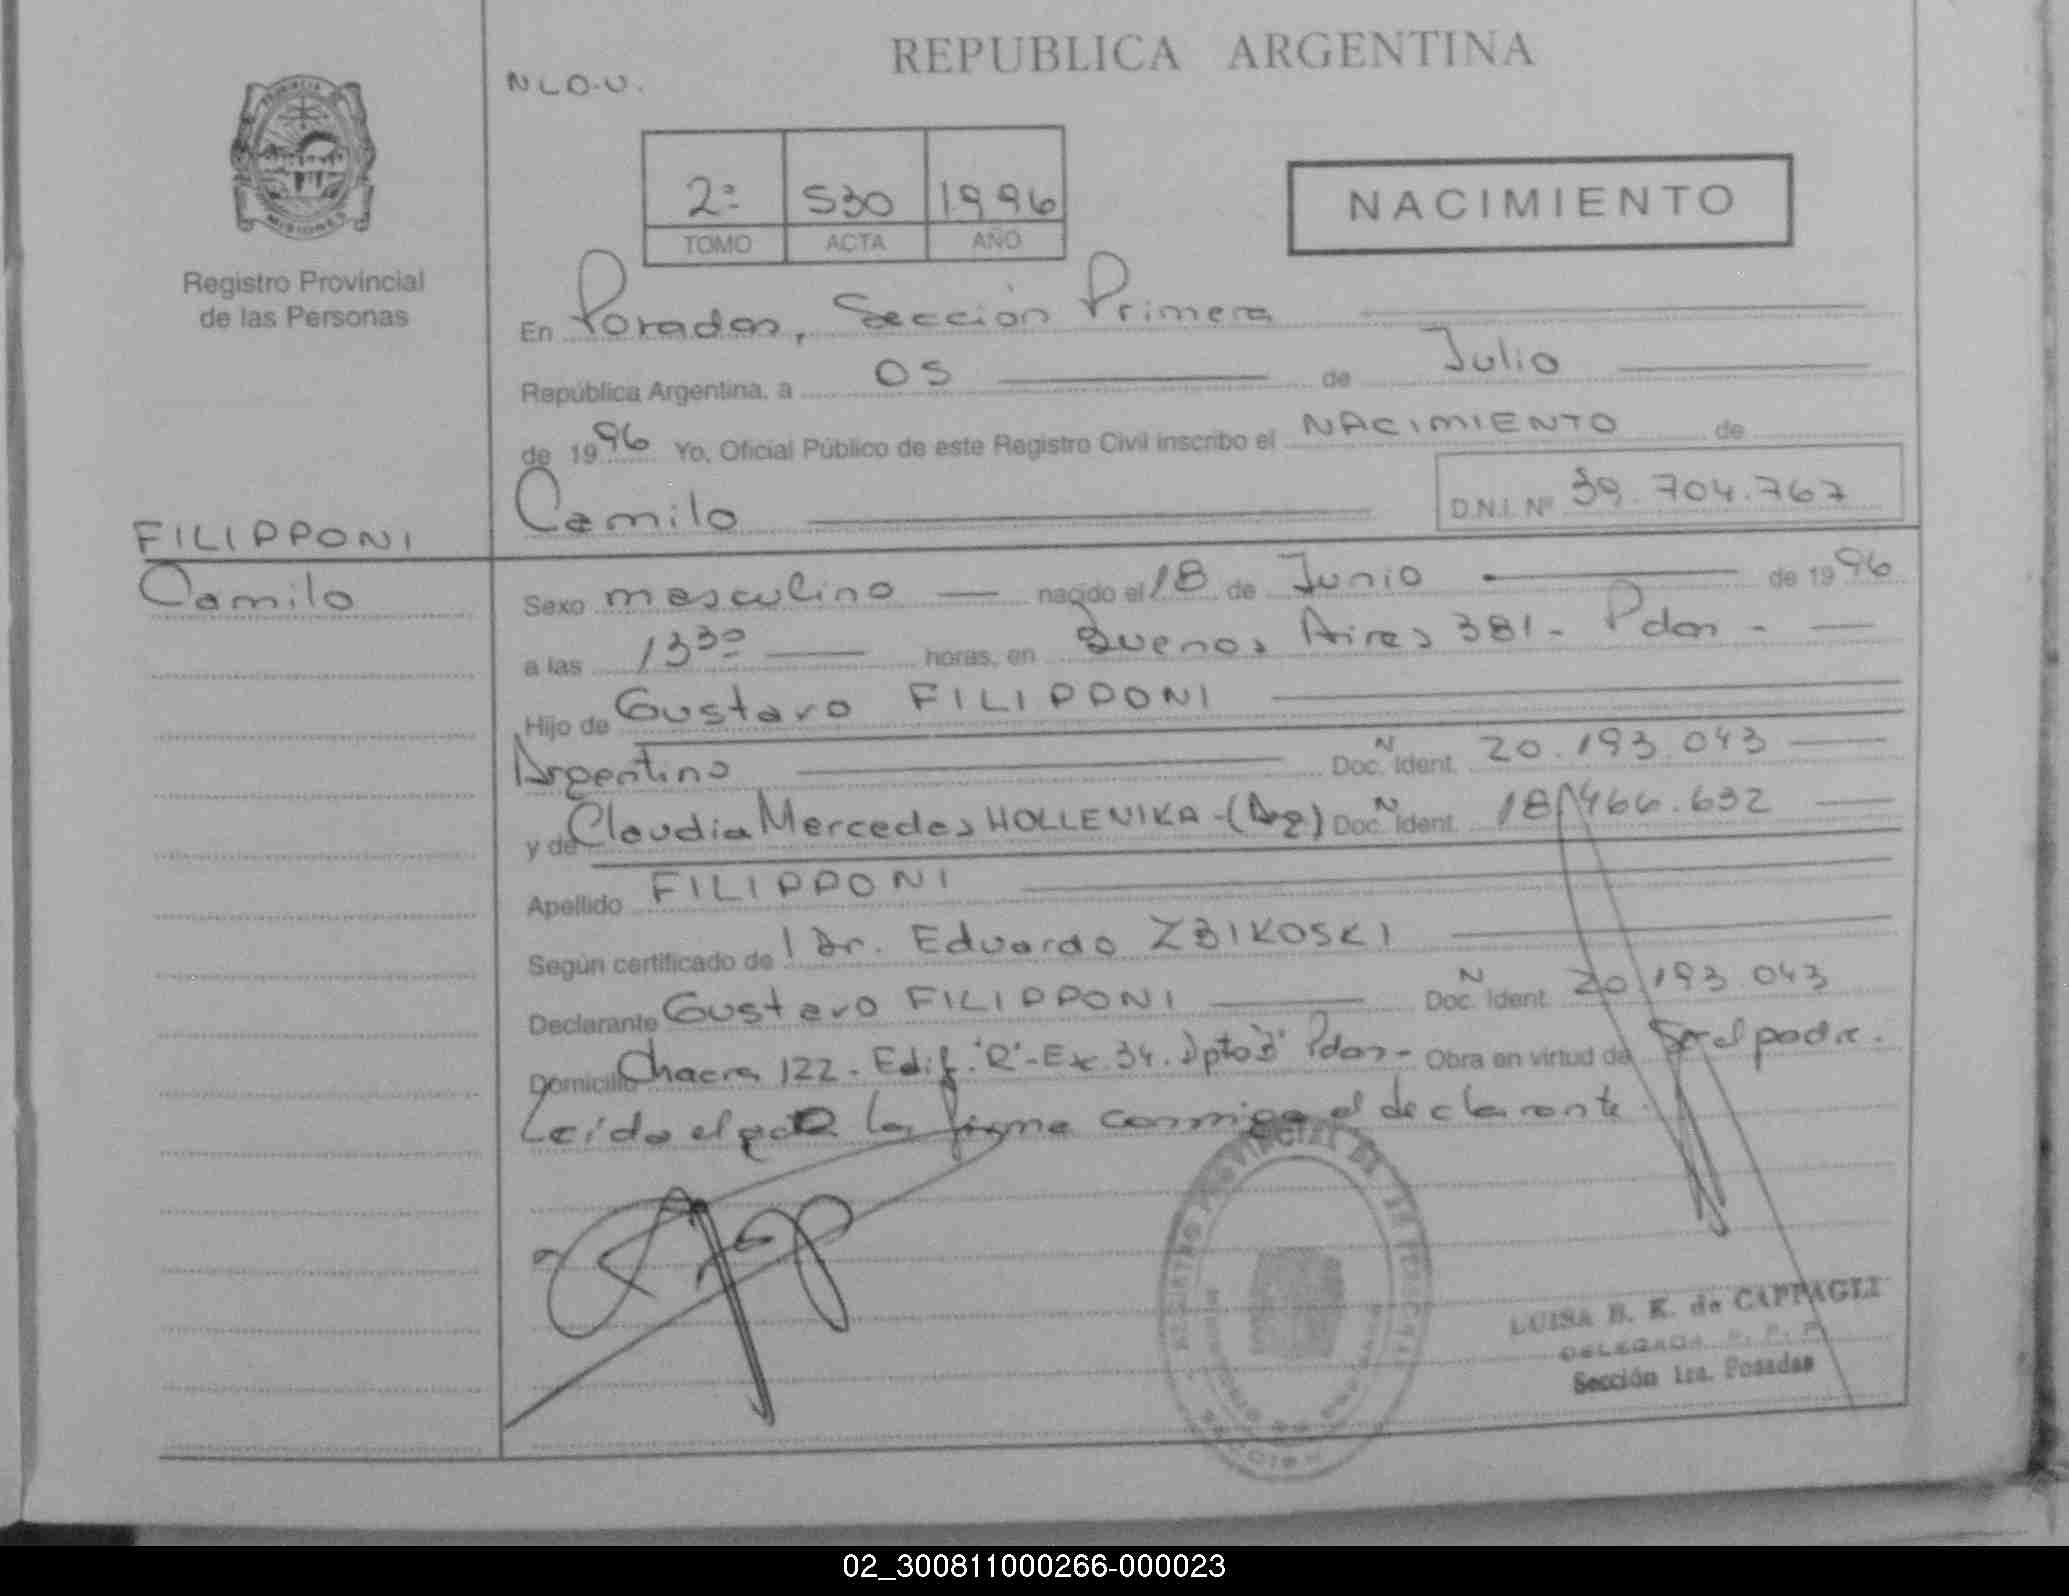 REPUBLICA ARGENTINA
N L O. U.
2ª 530 1996
TOMO ACTA AÑO
NACIMIENTO
PROVINCIA
MISIONES
Registro Provincial
de las Personas
En Posadas, Sección Primera
República Argentina, a 05 de Julio
de 1996 Yo, Oficial Público de este Registro Civil inscribo el NACIMIENTO de
Camilo D.N.I. Nº 39.704.767
FILIPPONI
Camilo
Sexo masculino nacido el 18 de Junio de 1996
a las 13³⁰ horas, en Buenos Aires 381 - Pdas -
Hijo de Gustavo FILIPPONI
Argentino Doc. N Ident. 20.193.043
y de Claudia Mercedes HOLLENIKA - (Arg) Doc. N Ident. 18.466.632
Apellido FILIPPONI
Según certificado de l Dr. Eduardo ZBIKOSKI
Declarante Gustavo FILIPPONI Doc. N Ident. 20.193.043
Domicilio Chacra 122 - Edif. "R" - Esc. 34. Dpto Pdas - Obra en virtud de Ser el padre.
Leída el acta la firma conmigo el declarante.
REGISTRO PROVINCIAL DE LAS PERSONAS
MISIONES
LUISA B. K. de CAPPAGLI
DELEGADA R. P. P.
Sección 1ra. Posadas
02_300811000266-000023